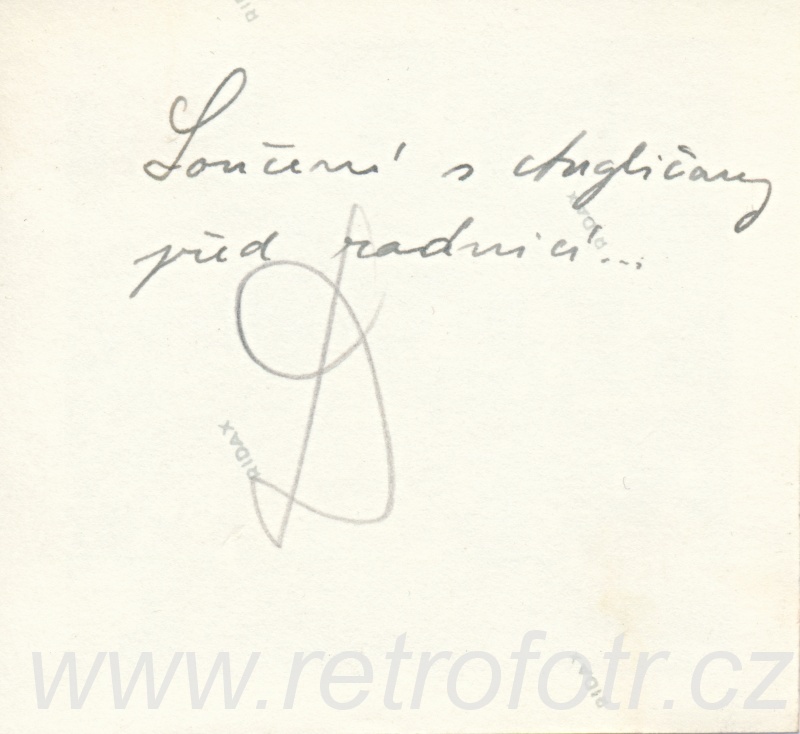 RIDAX
Loučení s Angličany
před radnicí...
RIDAX
RIDAX
RIDAX
www.retrofotr.cz